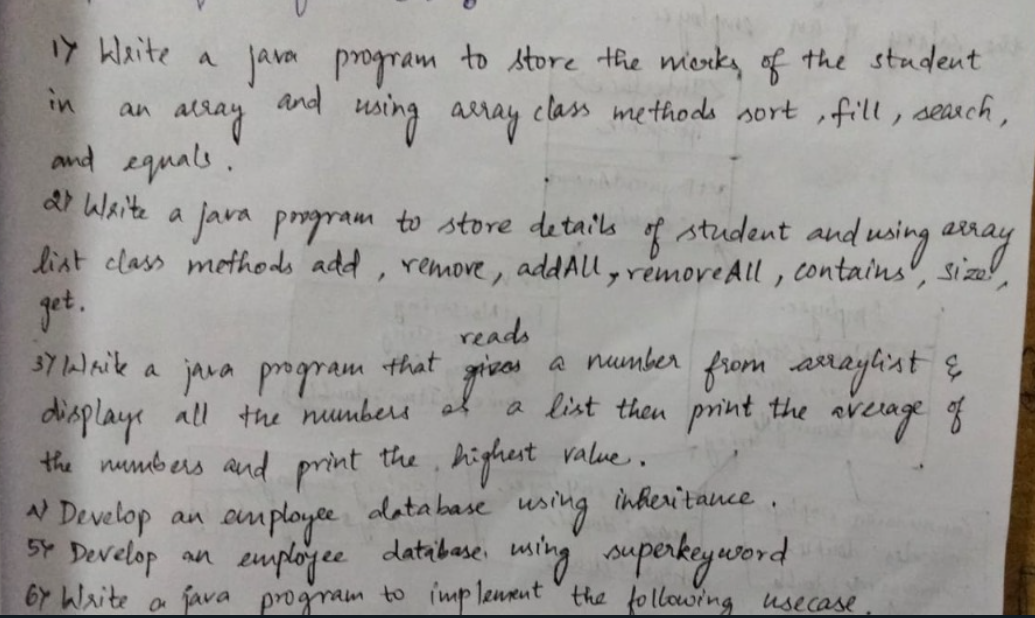 1) Write a java program to store the marks of the student
in an array and using array class methods sort , fill , search ,
and equals .
2) Write a java program to store details of student and using array
list class methods add , remove , addAll , removeAll , contains , size ,
get .
reads
3) Write a java program that gives a number from arraylist &
displays all the numbers as a list then print the average of
the numbers and print the highest value .
4) Develop an employee database using inheritance .
5) Develop an employee database using superkeyword
6) Write a java program to implement the following usecase .